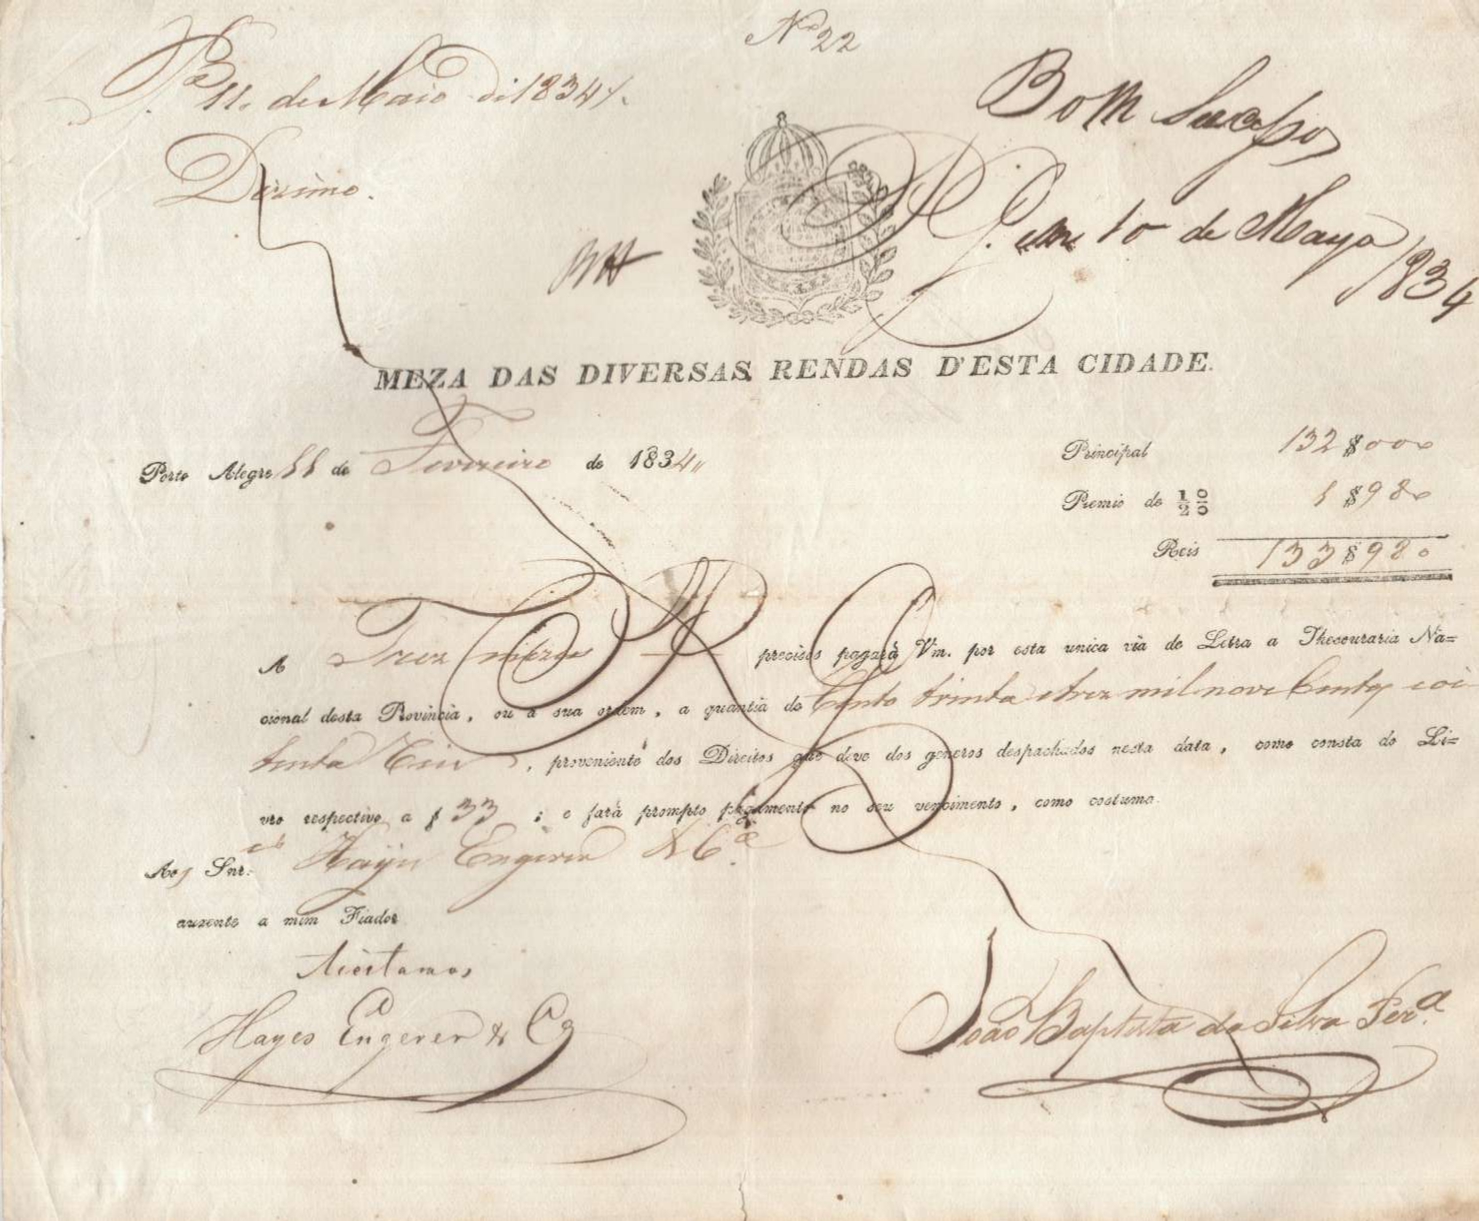 Nº 22
11. de Maio di 1834
Bom Sucesso
Dizimo.
P. em 10 de Mayo 1834
MEZA DAS DIVERSAS RENDAS D'ESTA CIDADE.
Porto Alegre 11 de Fevereiro de 1834
Principal 132$000
Premio de 1/2 % 1$980
Reis 133$980
A Trez mezes precisos pagará Vm. por esta unica via de Letra a Thesouraria Na=
cional desta Provincia, ou á sua ordem, a quantia de Cento trinta e trez mil nove Centos e oi
tenta Reis, proveniente dos Direitos que deve dos generos despachados nesta data, como consta do Li=
vro respectivo a f 33 ; e fará prompto pagamento no seu vencimento, como costuma.
Aos Snr.es Hayes Engerer & Ca.
auzente a mim Fiador
Aceitamos
Hayes Engerer & Co
João Baptista da Silva Per.a